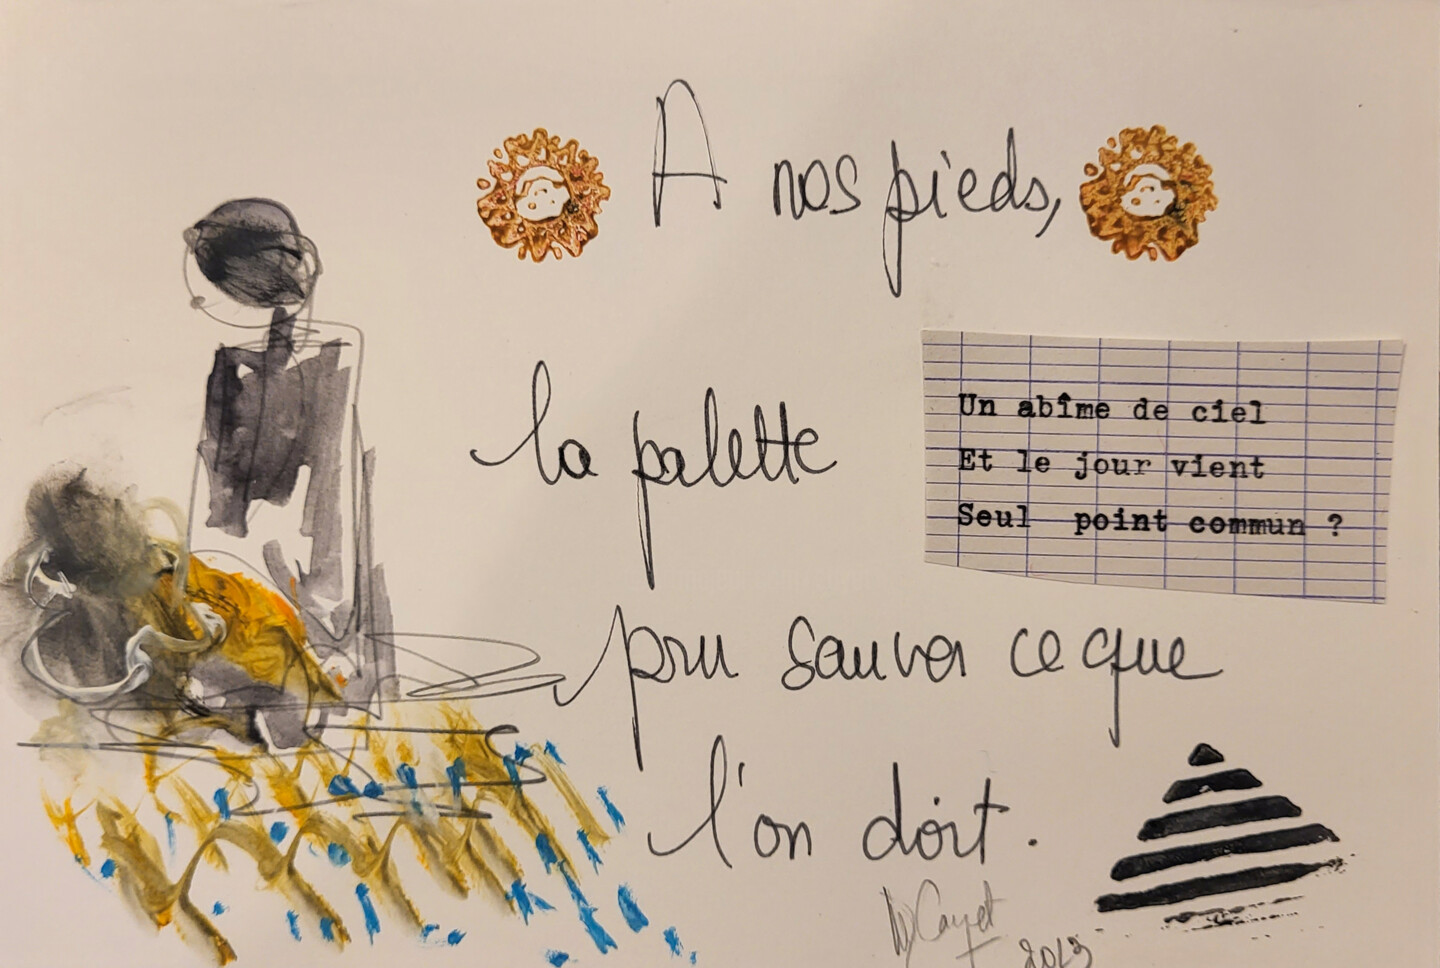 A nos pieds,
la palette
Un abîme de ciel
Et le jour vient
Seul point commun ?
pour sauver ce que
l'on doit.